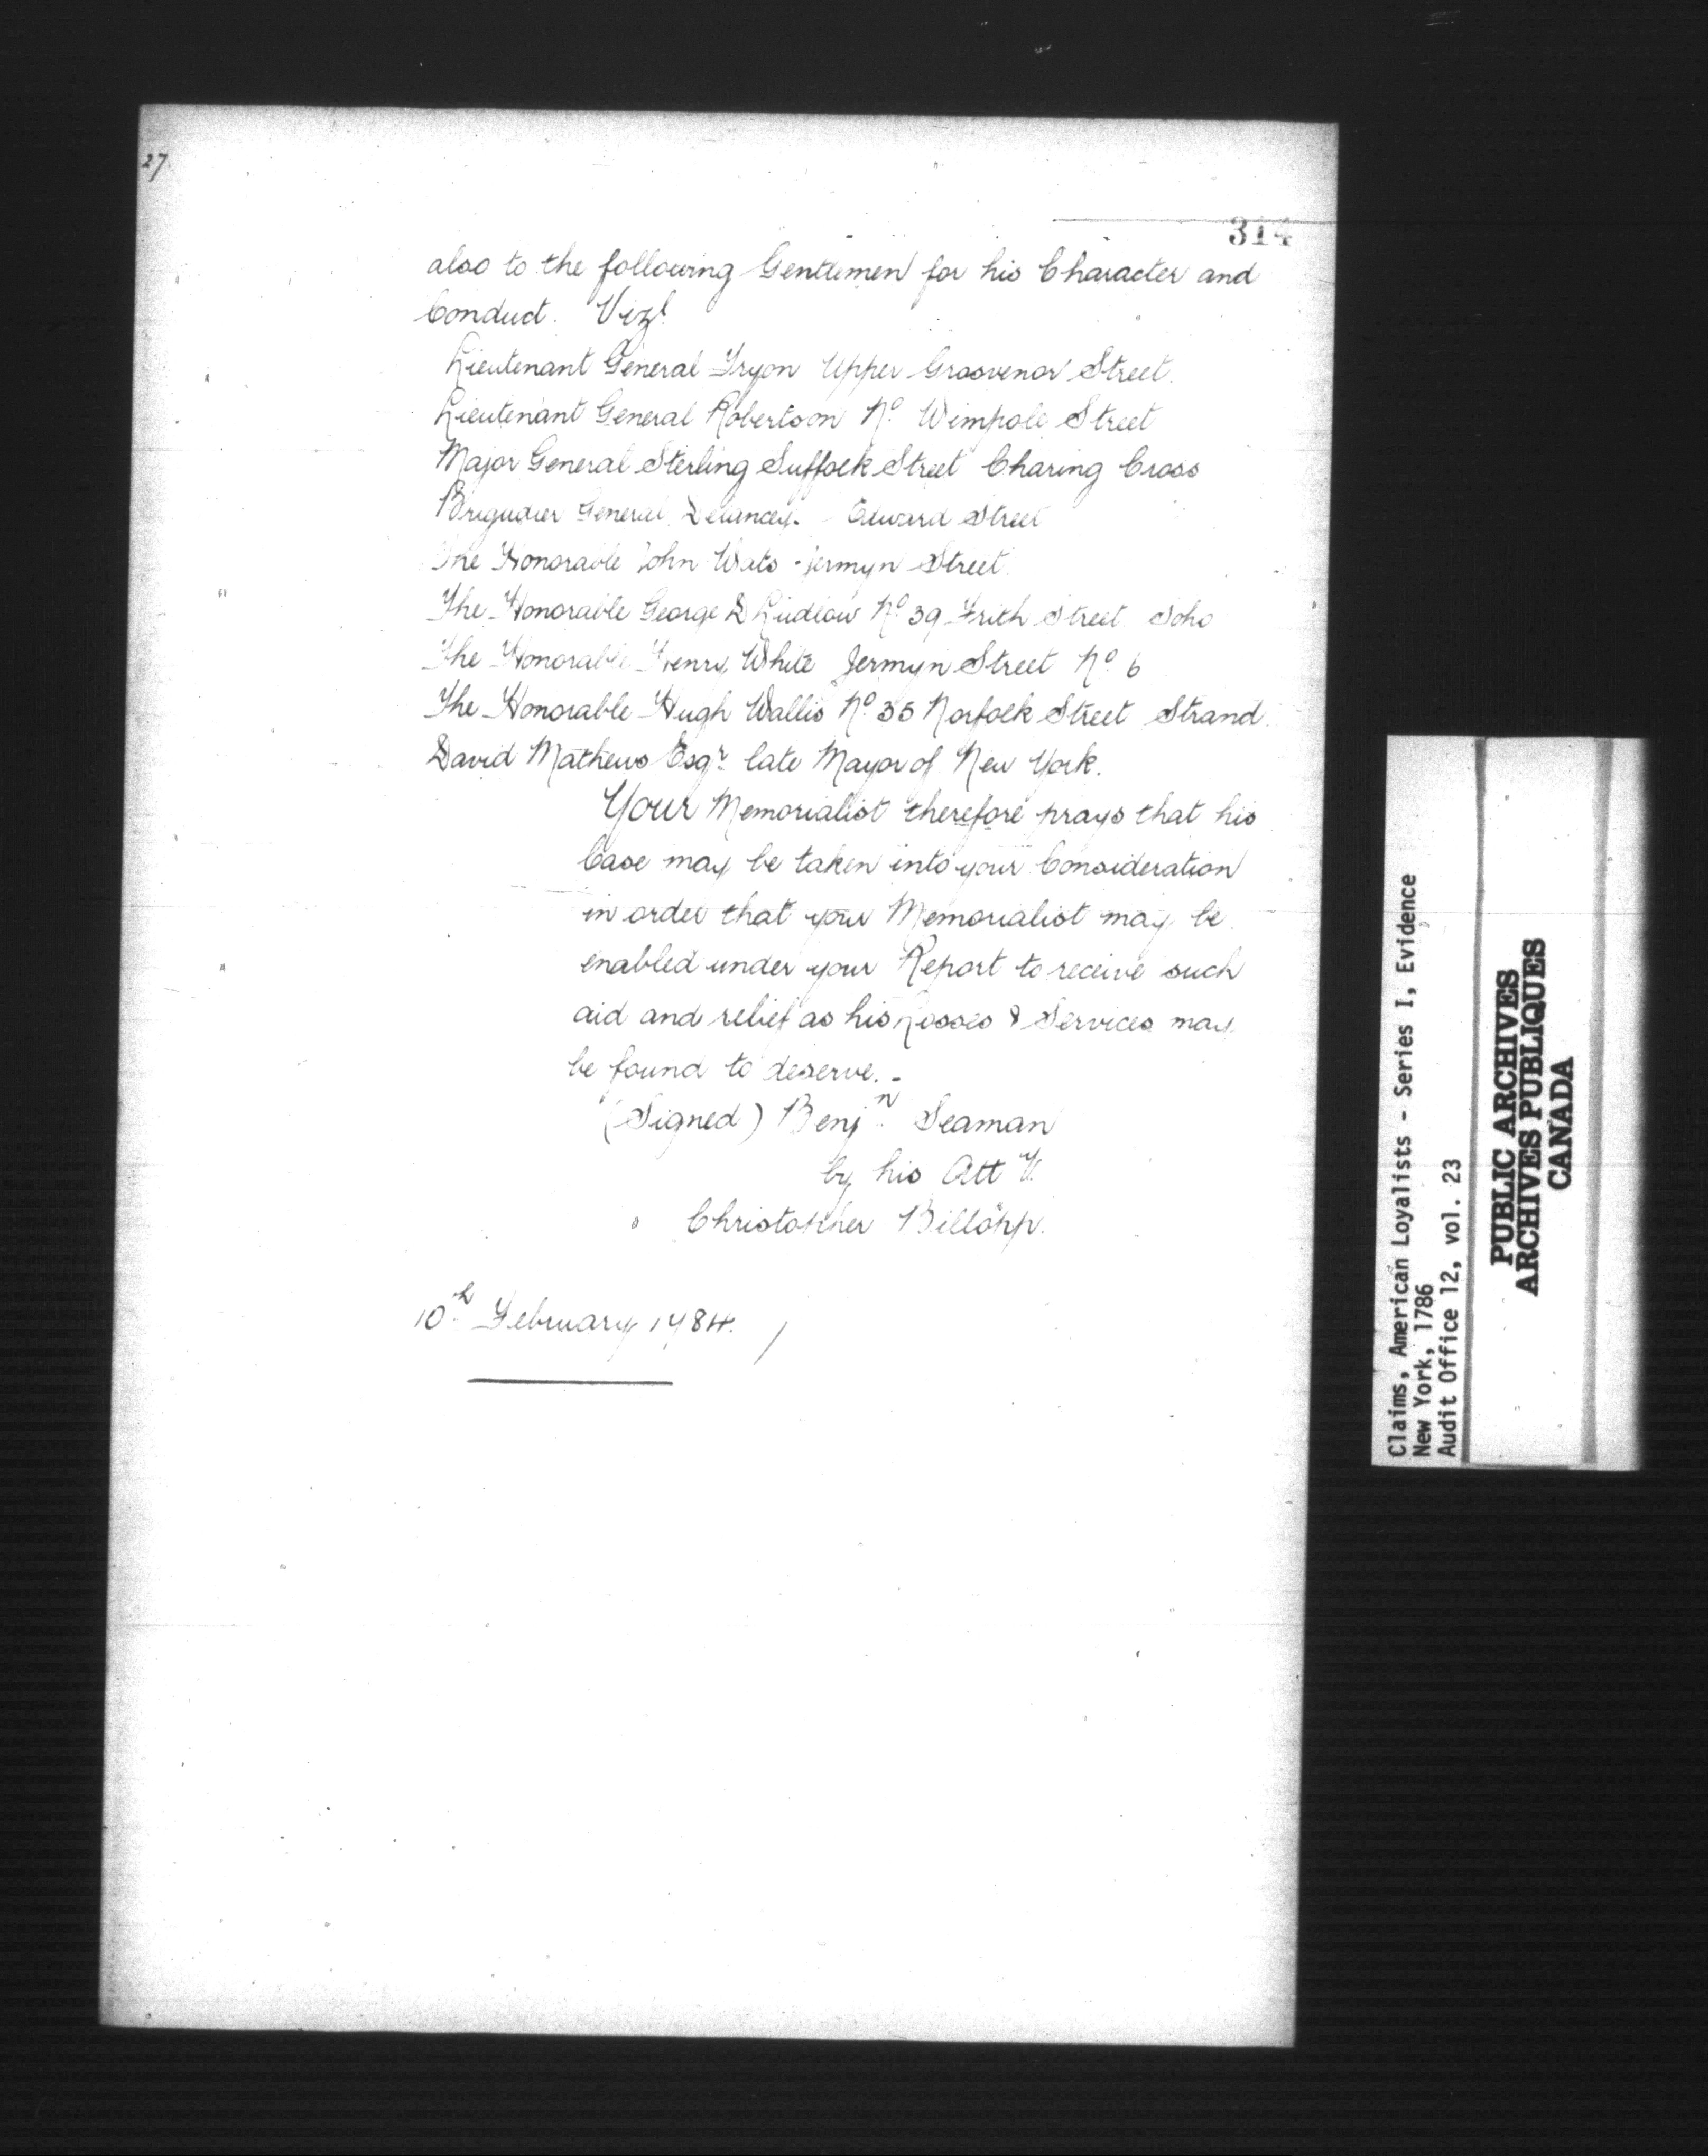 27.
314
also to the following Gentlemen for his Character and
Conduct. Vizt.
Lieutenant General Tryon Upper Grosvenor Street.
Lieutenant General Robertson No. Wimpole Street
Major General Sterling Suffolk Street Charing Cross
Brigadier General Delancey. - Edward Street
The Honorable John Wats - Jermyn Street.
The Honorable George D Ludlow No. 39 Frith Street Soho
The Honorable Henry White Jermyn Street No. 6
The Honorable Hugh Wallis No. 35 Norfolk Street Strand.
David Mathews Esqr. late Mayor of New York.
Your Memorialist therefore prays that his
Case may be taken into your Consideration
in order that your Memorialist may be
enabled under your Report to receive such
aid and relief as his Losses & Services may
be found to deserve. -
(Signed) Benjn. Seaman
by his Atty.
Christopher Billopp.
10th. February 1784. /
Claims, American Loyalists - Series I, Evidence
New York, 1786
Audit Office 12, vol. 23
PUBLIC ARCHIVES
ARCHIVES PUBLIQUES
CANADA